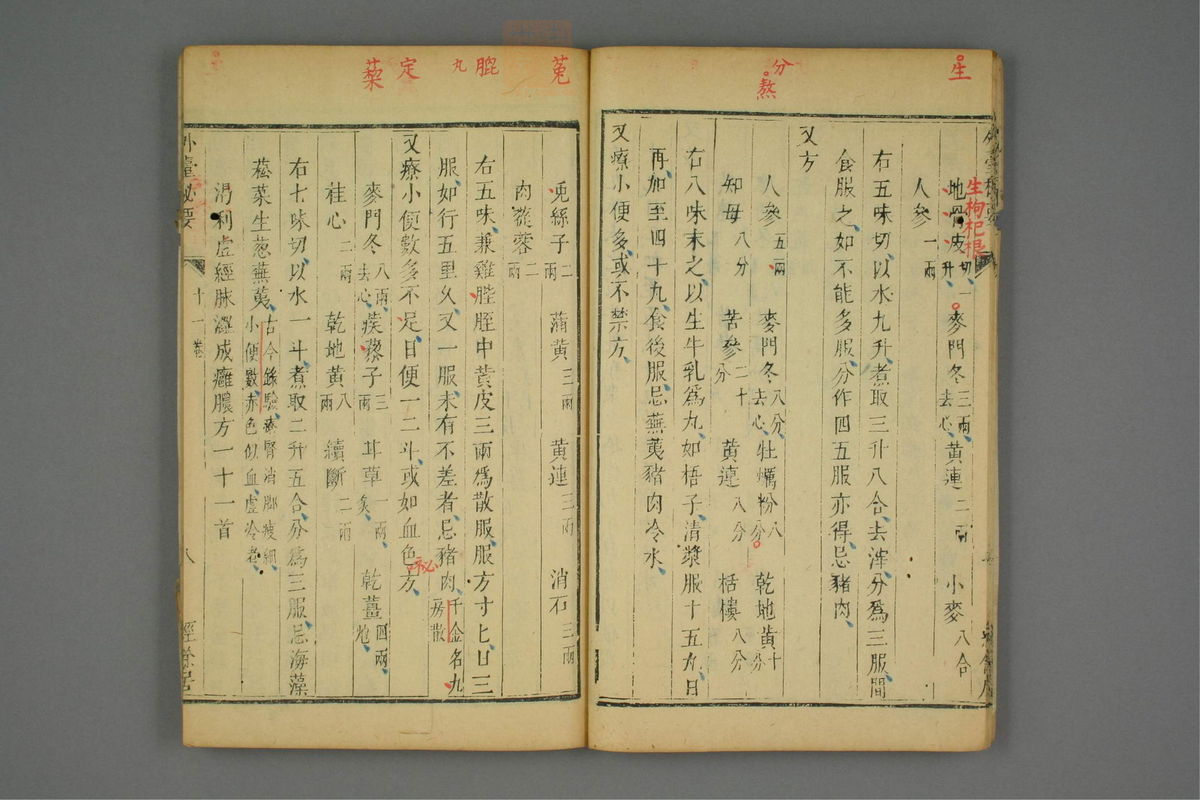 生
分
熬
生枸杞根
地骨皮切一升 麥門冬三兩去心 黃連二兩 小麥八合
人參一兩
右五味切以水九升煮取三升八合去滓分爲三服間
食服之如不能多服分作四五服亦得忌豬肉
又方
人參五兩 麥門冬八分去心 牡蠣粉八分 乾地黃十分
知母八分 苦參二十分 黃連八分 栝樓八分
右八味末之以生牛乳爲丸如梧子清漿服十五丸日
再加至四十丸食後服忌蕪荑豬肉冷水
又療小便多或不禁方
菟
膍
丸
定
蔾
兎絲子二兩 蒲黃三兩 黃連三兩 消石三兩
肉蓯蓉二兩
右五味兼雞膍胵中黃皮三兩爲散服服方寸匕日三
服如行五里久又一服未有不差者忌豬肉千金名九房散
又療小便數多不足日便一二斗或如血色方
麥門冬八兩去心 蒺蔾子三兩 甘草一兩炙 乾薑四兩炮
桂心二兩 乾地黃八兩 續斷二兩
右七味切以水一斗煮取二升五合分爲三服忌海藻
菘菜生葱蕪荑古今錄驗療腎消脚疲細小便數赤色似血虛冷者
渴利虛經脉澀成癰膿方一十一首
外臺秘要 十一卷 八 經餘居